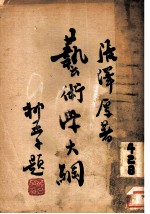 張澤厚著
藝術學大綱
題
428